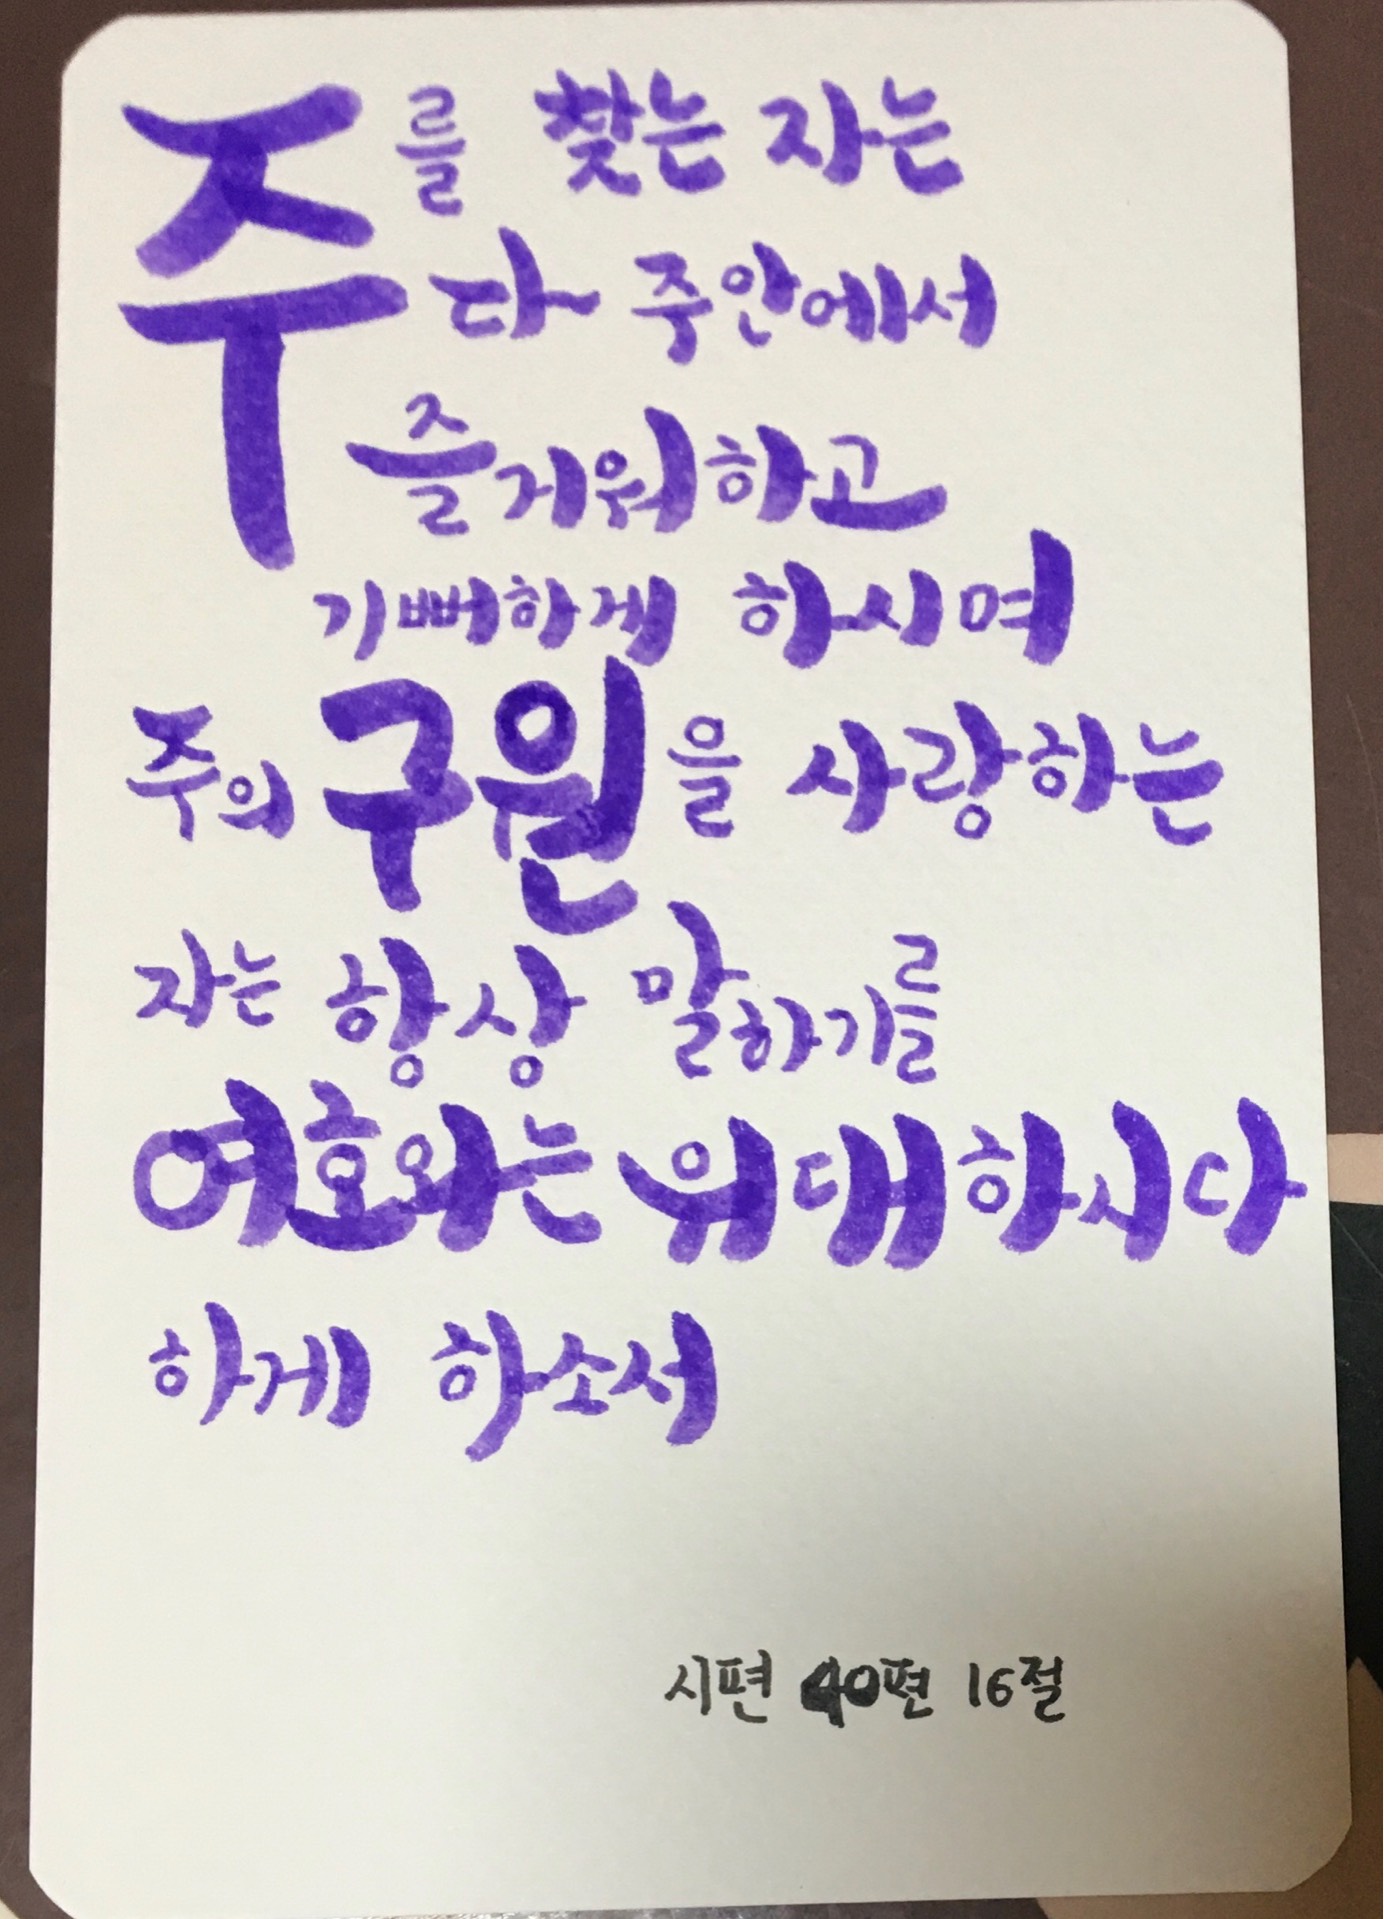 주를 찾는 자는
다 주안에서
즐거워하고
기뻐하게 하시며
주의 구원을 사랑하는
자는 항상 말하기를
여호와는 위대하시다
하게 하소서
시편 40편 16절